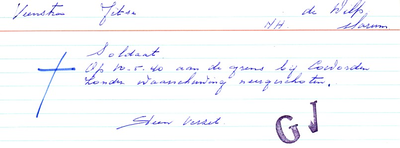 Veenstra Jetse de Wilp
NH Marum
Soldaat
Op 10-5-40 aan de grens bij Coevorden
zonder waarschuwing neergeschoten.
Steen Vessel
GV